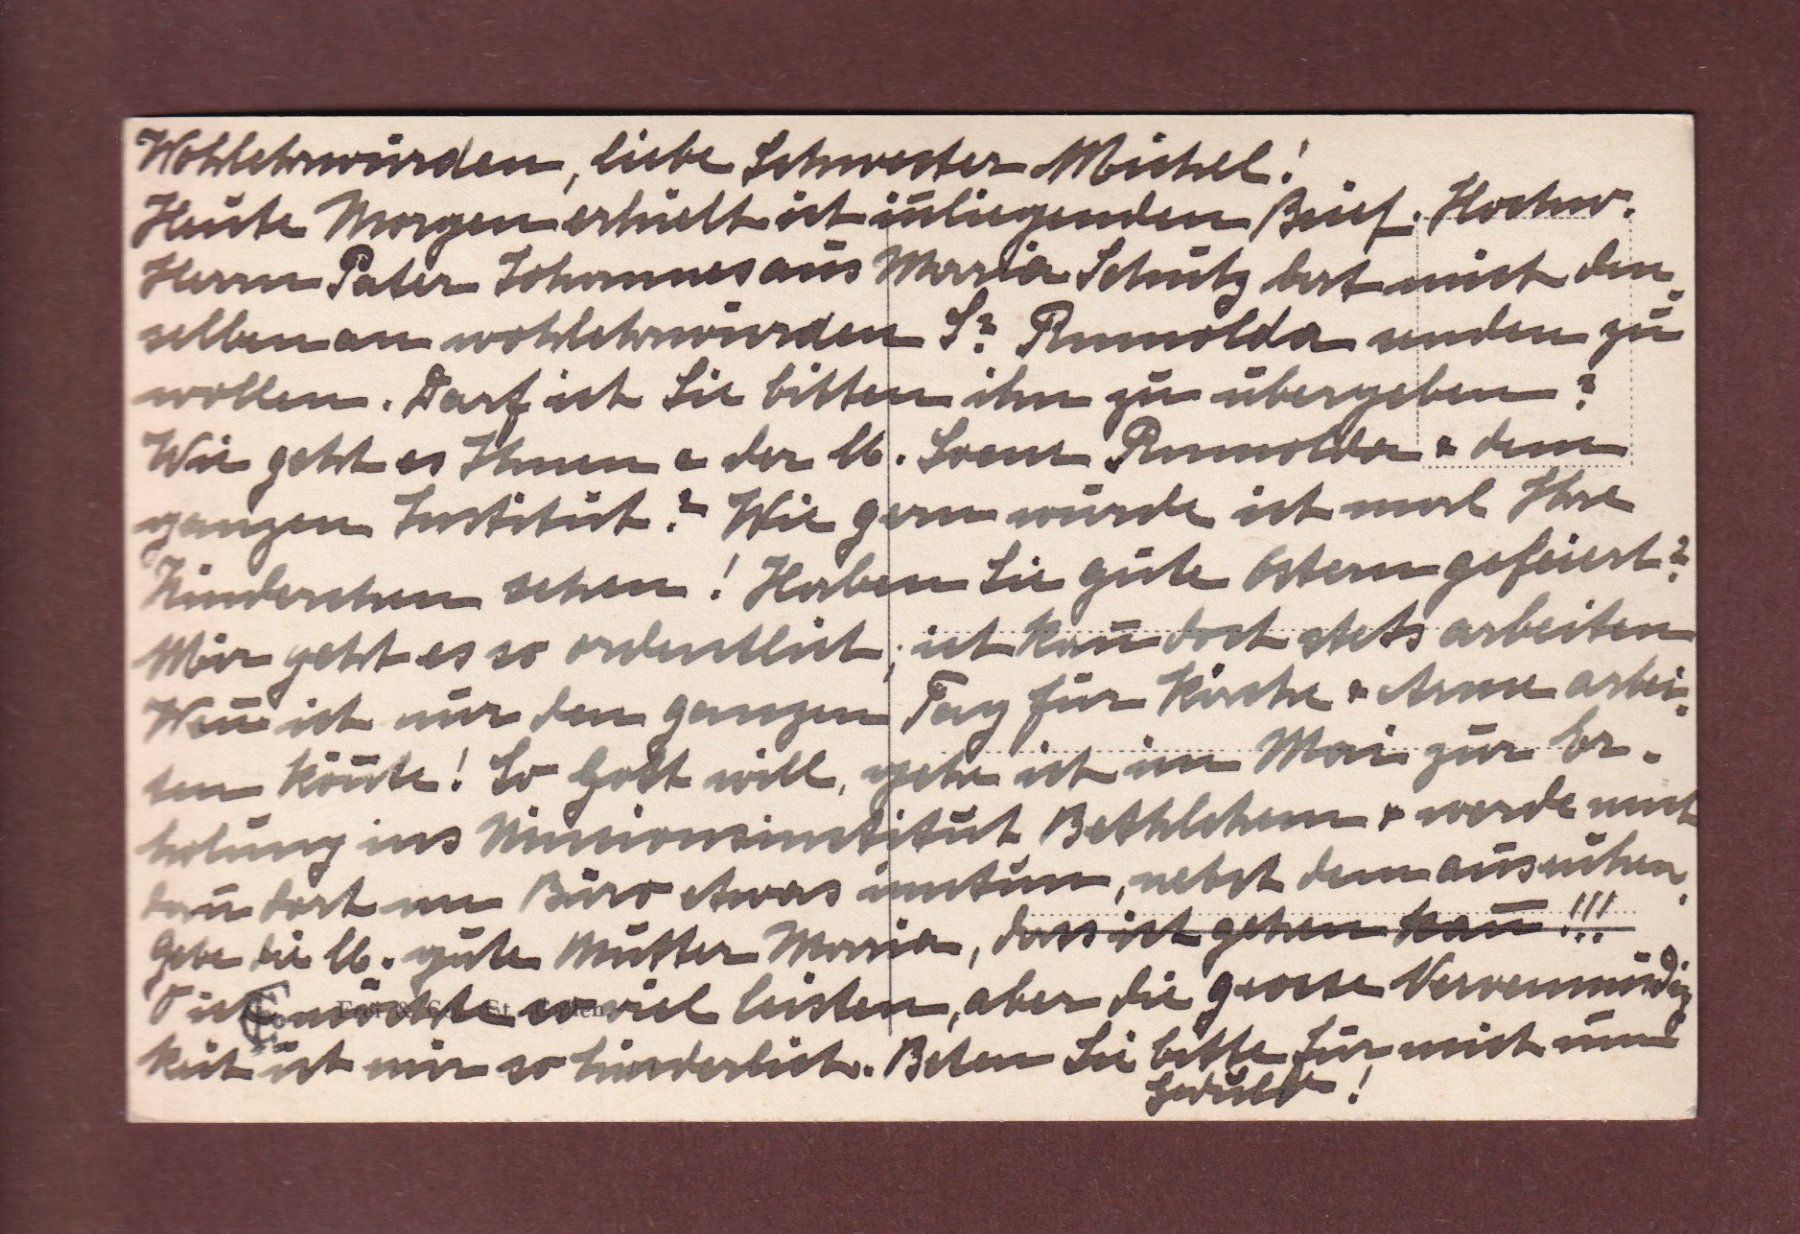 Wohlehrwürden, liebe Schwester Michel!
Heute Morgen erhielt ich inliegenden Brief. Hochw.
Herrn Pater Johannes aus Maria Schutz bat mich den-
selben an wohlehrwürden Sr. Rumolda senden zu
wollen. Darf ich Sie bitten ihn zu übergeben?
Wie geht es Ihnen & der lb. Soeur Rumolda & dem
ganzen Institut? Wie gern würde ich mal Ihre
Kinderchen sehen! Haben Sie gute Ostern gefeiert?
Mir geht es so ordentlich; ich kan̄ doch stets arbeiten
Wen̄ ich nur den ganzen Tag für Kirche & Arme arbei-
ten kön̄te! So Gott will, gehe ich im Mai zur Er-
holung ins Missionsinstitut Bethlehem & werde auch
dan̄ dort im Büro etwas mittun, nebst dem ausruhen.
Gebe die lb. gute Mutter Maria, dass ich gehen kan̄!!!
O ich möchte so viel leisten, aber die grosse Nervenmüdig-
keit ist mir so hinderlich. Beten Sie bitte für mich um
Geduld!
Frei & Co. St. Gallen